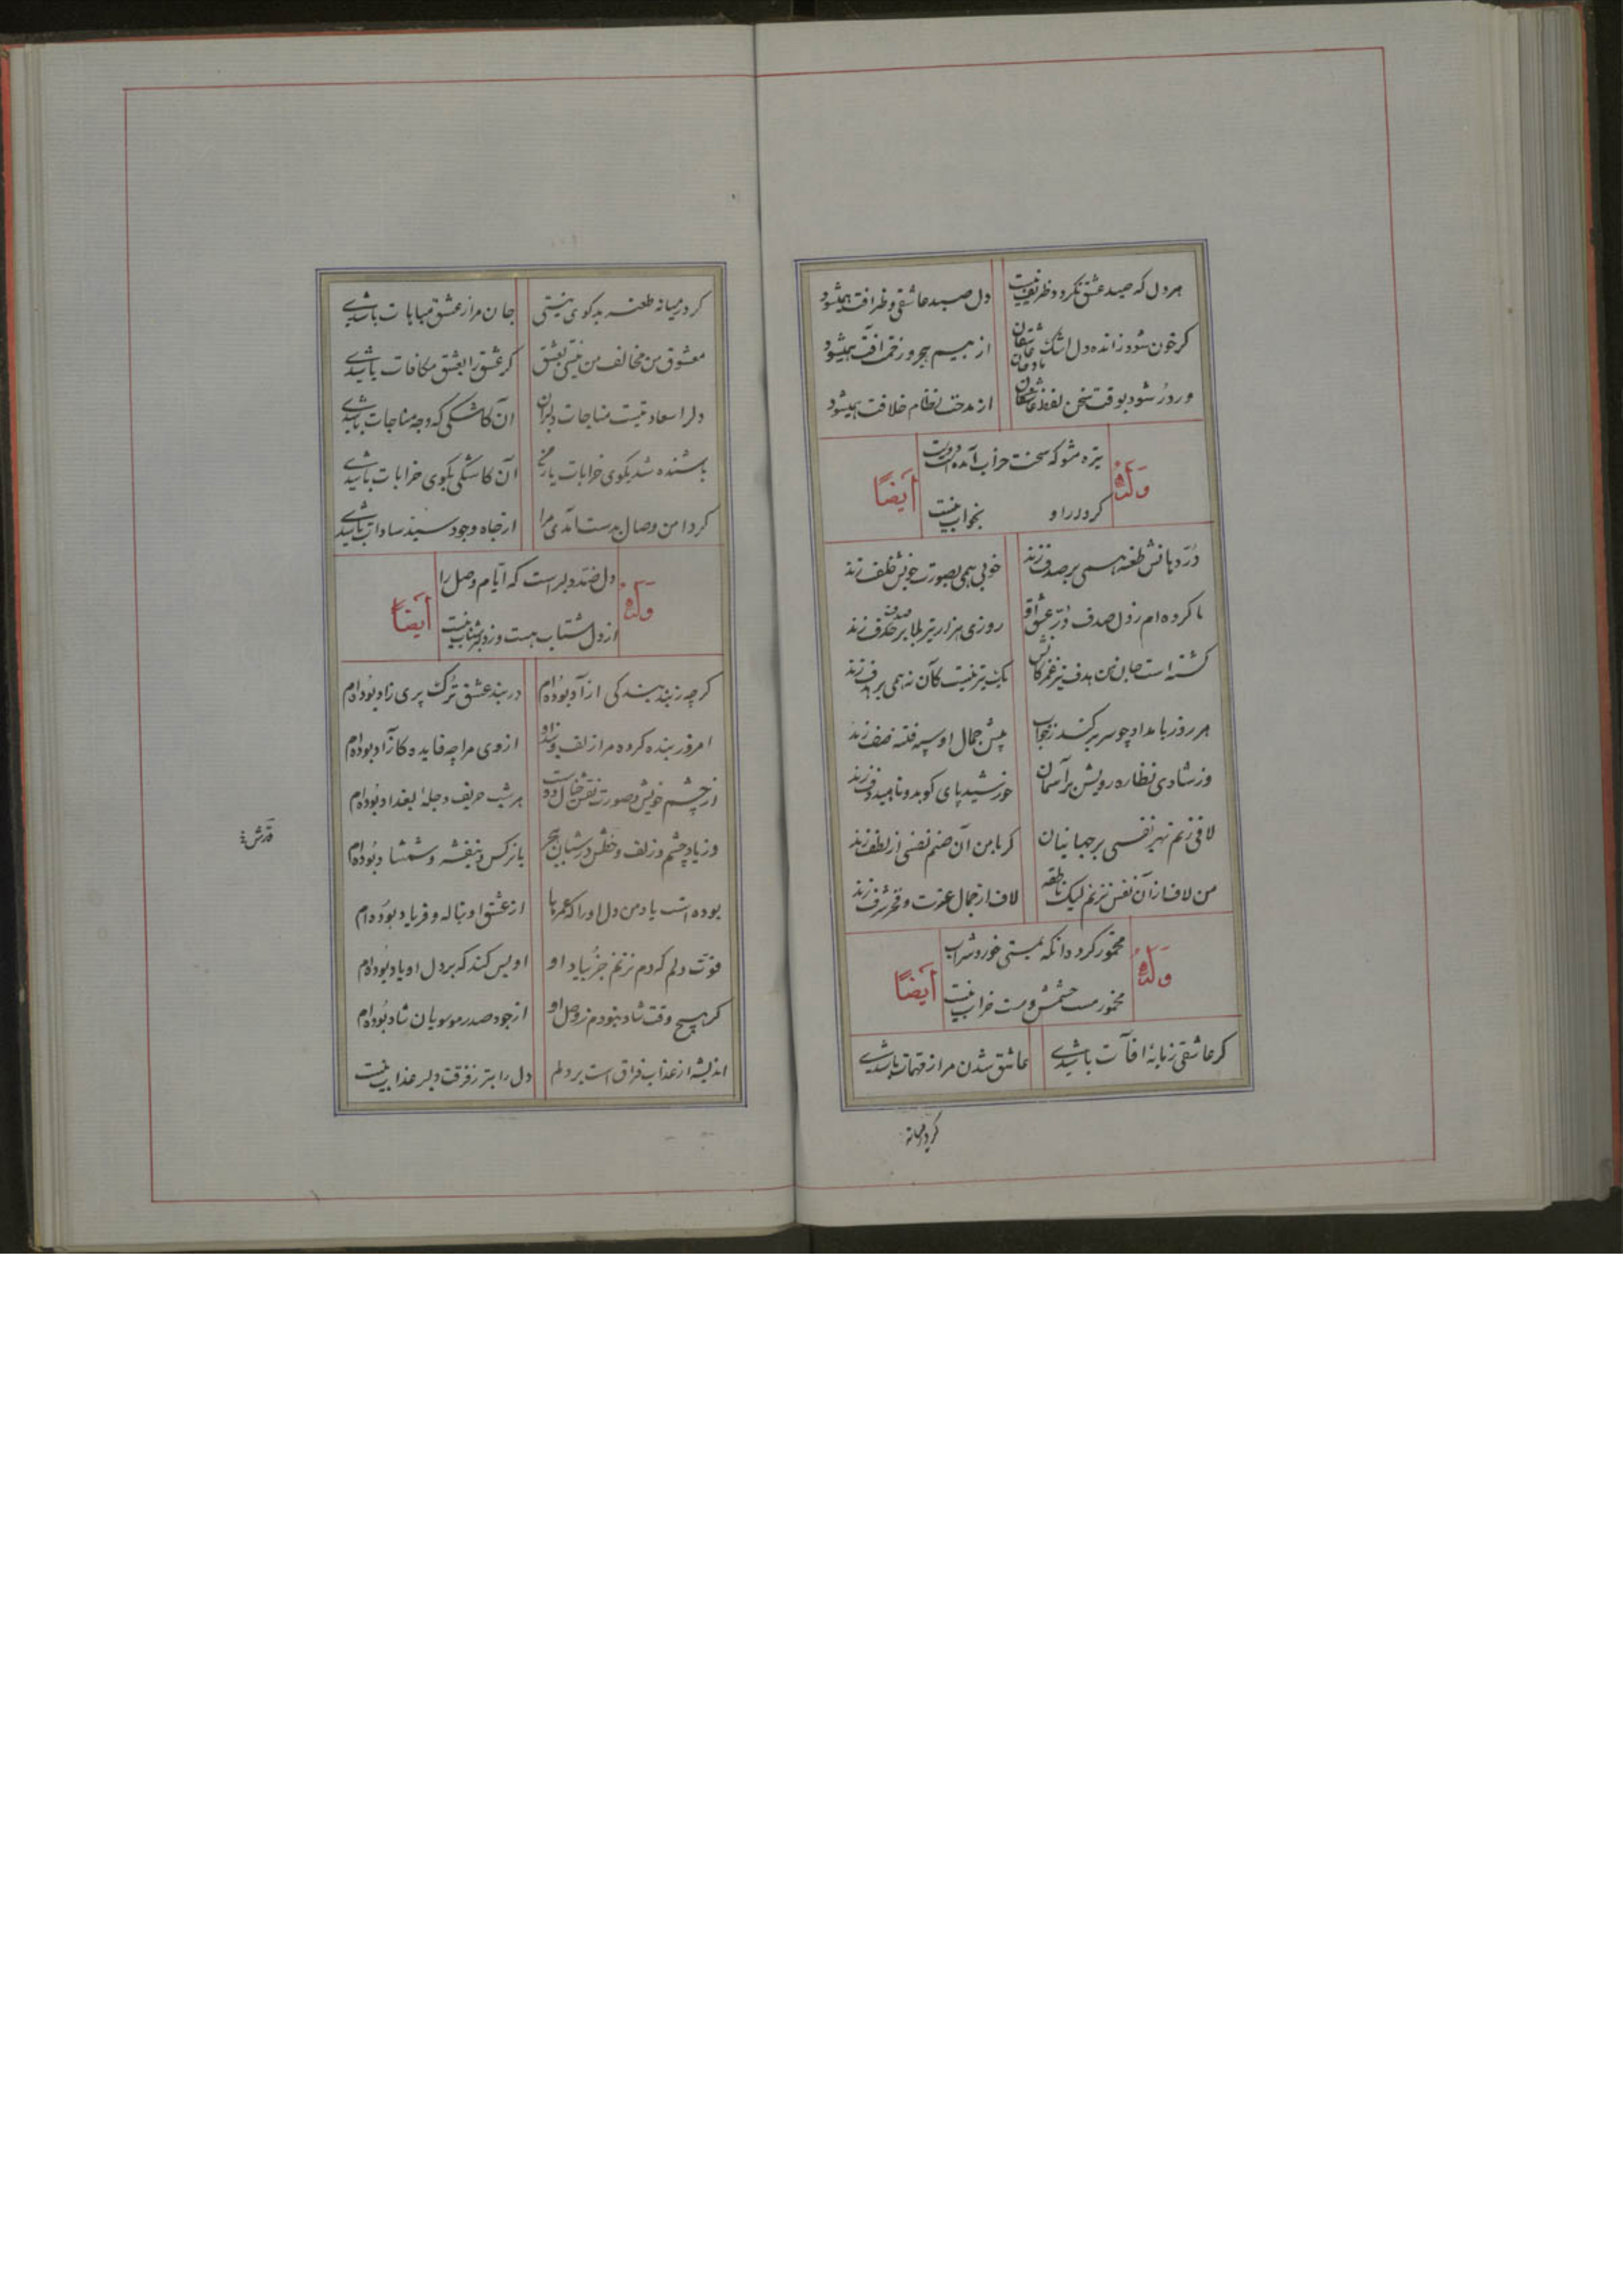 هر دل که صید عشق نگردد ظریف نیست
دل صید عاشقی و ظرافت همیشود
گر خون شود ز انده دل اشک عاشقان
از بیم هجر و زخم آفت همیشود
ور در شود بوقت سخن لفظ عاشقان
از مدحت نظام خلافت همیشود
وله
تیره مشو که سخت خراب آمده
ایضاً
بخواب نیست
در دهانش طعنه همی بر صدف زند
خوبی همی بصورت خویش خلف زند
تا کرده ام ز دل صدف در عشق او
روزی هزار تیر بلا بر صدف زند
گشته است جان من هدف تیر غمزگانش
یک تیر نیست کان نه همی بر هدف زند
هر روز بامداد چو سر بر کند ز خواب
پیش جمال او سپه فتنه صف زند
وز شادی نظاره رویش بر آسمان
خورشید پای کوبد و ناهید دف زند
لافی زنم بهر نفسی بر جهانیان
گر با من آن صنم نفسی از لطف زند
من لاف از آن نفس نزنم لیک ناطقه
لاف از جمال عزت و فخر شرف زند
وله
مخمور گردد آنکه بمستی خورد شراب
ایضاً
مخمور مست چشمش و مست خراب نیست
گر عاشقی زمانهٔ آفات باشدی
عاشق شدن مرا ز مهمات باشدی
گر در میانه
گر در میانه طعنه بدگوی نیستی
جان مرا ز عشق مباهات باشدی
معشوق من مخالف من نیستی بعشق
گر عشق را بعشق مکافات باشدی
دلرا سعادتیست مناجات دلبران
آن کاشکی که وجه مناجات باشدی
باشنده شد بکوی خرابات یار من
آن کاشکی بکوی خرابات باشدی
گر دامن وصال بدست آمدی مرا
از جاه وجود سید سادات باشدی
وله
دل ضد دلبر است که ایام وصل را
ایضاً
از دل شتاب هست و ز دلبر شتاب نیست
گرچه ز بند بندگی آزاد بوده ام
در بند عشق ترک پری زاد بوده ام
امروز بنده کرده مرا زلف و خد او
از وی مرا چه فایده کازاد بوده ام
از چشم خویش و صورت نقش خیال دوست
هر شب حریف دجلهٔ بغداد بوده ام
وز یاد چشم و زلف و خطش در شبان هجر
با نرگس و بنفشه و شمشاد بوده ام
بوده است یاد من دل او را که عمرها
از عشق او بناله و فریاد بوده ام
قوت دلم که دم نزنم جز بیاد او
او بس کند که بر دل او یاد بوده ام
گر هیچ وقت شاد نبودم ز وصل او
از جود صدر موسویان شاد بوده ام
اندیشه از عذاب فراق است بر دلم
دل را بتر ز فرقت دلبر عذاب نیست